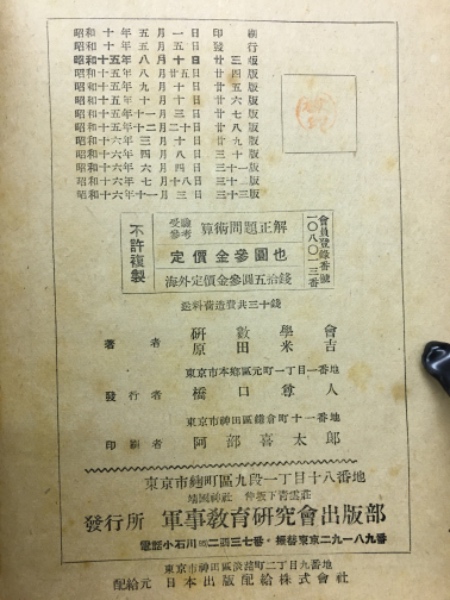 昭和十年五月一日印刷
昭和十年五月五日發行
昭和十五年八月十日廿三版
昭和十五年八月廿五日廿四版
昭和十五年九月十日廿五版
昭和十五年十月十日廿六版
昭和十五年十一月三日廿七版
昭和十五年十二月二十日廿八版
昭和十六年三月十日廿九版
昭和十六年四月八日三十版
昭和十六年六月四日三十一版
昭和十六年七月十八日三十二版
昭和十六年十一月三日三十三版
不許複製
受驗參考 算術問題正解
定價金參圓也
海外定價金參圓五拾錢
會員登錄番號
一〇八〇一三番
送料荷造費共三十錢
著者 研數學會
原田米吉
東京市本鄕區元町一丁目一番地
發行者 橋口尊人
東京市神田區鎌倉町十一番地
印刷者 阿部喜太郎
東京市麴町區九段一丁目十八番地
靖國神社 仲坂下靑雲莊
發行所 軍事敎育硏究會出版部
電話小石川二三七番・振替東京二九一八九番
東京市神田區淡路町二丁目九番地
配給元 日本出版配給株式會社